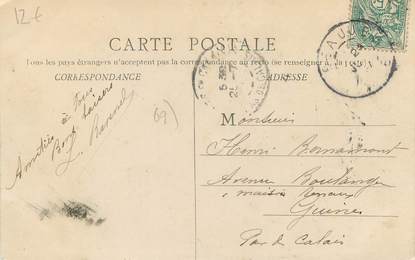 12€
CARTE POSTALE
Tous les pays étrangers n'acceptent pas la correspondance au recto (se renseigner à la poste)
CORRESPONDANCE
ADRESSE
BEAUJEU
Amitiés à Tous
Bons baisers
69)
Monsieur
Henri
Avenue Boulanger
maison
Guines
Pas de Calais